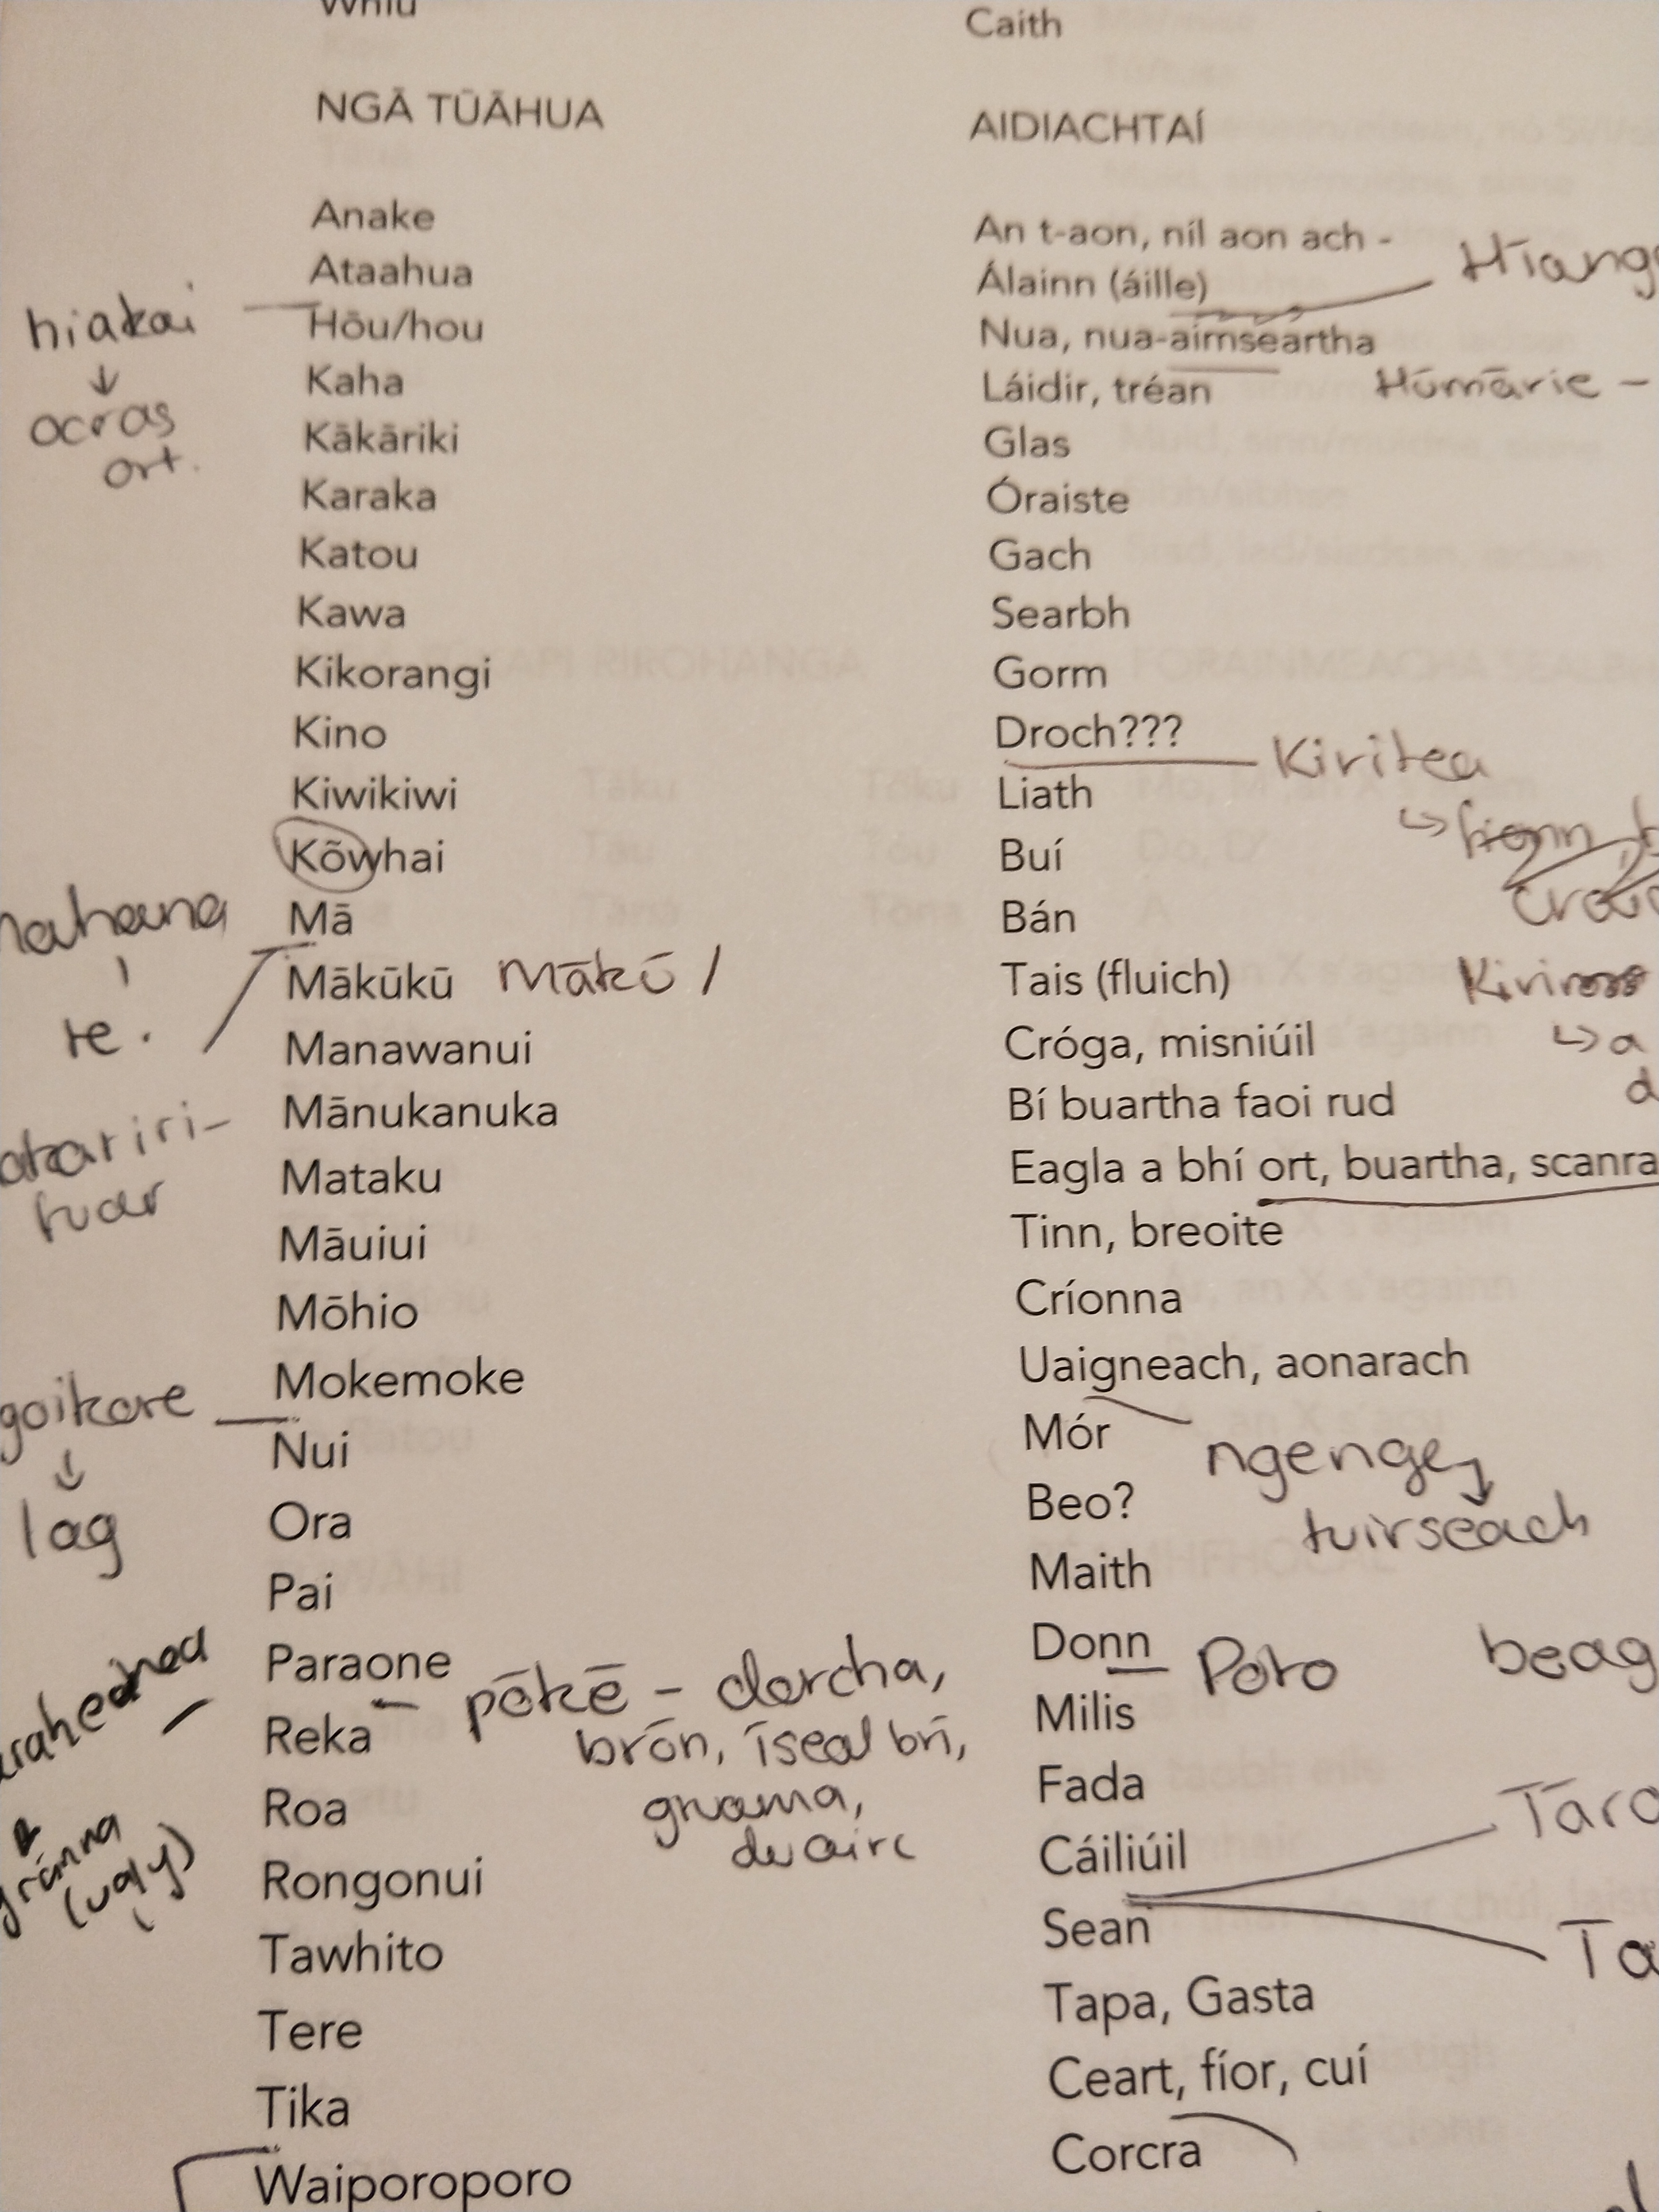 Whiu Caith
NGĀ TŪĀHUA AIDIACHTAÍ
Anake An t-aon, níl aon ach -
Ataahua Álainn (áille)
hiakai Hōu/hou Nua, nua-aimseartha
Kaha Láidir, tréan Hūmārie -
ocras Kākāriki Glas
ort. Karaka Óraiste
Katou Gach
Kawa Searbh
Kikorangi Gorm
Kino Droch??? Kiritea
Kiwikiwi Liath
Kōwhai Buí
Mā Bán
Mākūkū Mākū / Tais (fluich)
te. Manawanui Cróga, misniúil
Mānukanuka Bí buartha faoi rud
Mataku Eagla a bhí ort, buartha,
fuar Māuiui Tinn, breoite
Mōhio Críonna
Mokemoke Uaigneach, aonarach
Nui Mór ngenge
lag Ora Beo? tuirseach
Pai Maith
Paraone Donn Poto beag
pōkē - dorcha,
Reka brón, íseal brí, Milis
Roa gruama, Fada
duairc
gránna
(ugly) Rongonui Cáiliúil
Tawhito Sean
Tere Tapa, Gasta
Tika Ceart, fíor, cuí
Waiporoporo Corcra